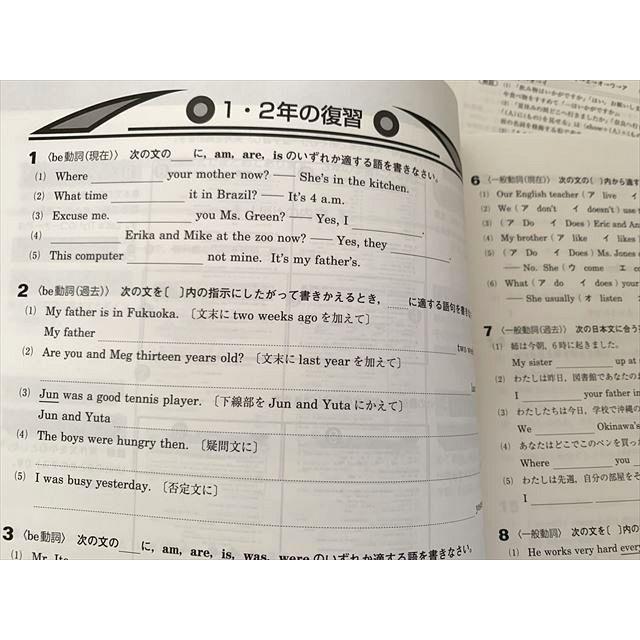 1・2年の復習
1 〈be動詞(現在)〉 次の文の___に, am, are, is のいずれか適する語を書きなさい。
(1) Where ________ your mother now? — She's in the kitchen.
(2) What time ________ it in Brazil? — It's 4 a.m.
(3) Excuse me. ________ you Ms. Green? — Yes, I ________.
(4) ________ Erika and Mike at the zoo now? — Yes, they ________.
(5) This computer ________ not mine. It's my father's.
2 〈be動詞(過去)〉 次の文を〔 〕内の指示にしたがって書きかえるとき, ......に適する語句を書きな
(1) My father is in Fukuoka. 〔文末に two weeks ago を加えて〕
My father ........ two
(2) Are you and Meg thirteen years old? 〔文末に last year を加えて〕
(3) Jun was a good tennis player. 〔下線部を Jun and Yuta にかえて〕
Jun and Yuta ........
(4) The boys were hungry then. 〔疑問文に〕
(5) I was busy yesterday. 〔否定文に〕
3 〈be動詞〉 次の文の___に, am, are, is, was, were のいずれか適する語を書きなさい。
(1) Mr.
6 〈一般動詞(現在)〉 次の文の( )内から適
(1) Our English teacher (ア live イ
(2) We (ア don't イ doesn't) use
(3) (ア Do イ Does) Eric and
(4) My brother (ア like イ likes
(5) (ア Do イ Does) Ms. Jones
— No. She (ウ come エ
(6) What (ア do イ does) your
— She usually (オ listen
7 〈一般動詞(過去)〉 次の日本文に合う
(1) 姉は今朝, 6時に起きました。
My sister ________ up at
(2) わたしは昨日, 図書館であなたのお
I ________ your father in
(3) わたしたちは今日, 学校で沖縄の
We ________ Okinawa's
(4) あなたはどこでこのペンを買った
Where ________ you
(5) わたしは先週, 自分の部屋をそ
I ________
8 〈一般動詞〉 次の文を〔 〕内の
(1) He works very hard every